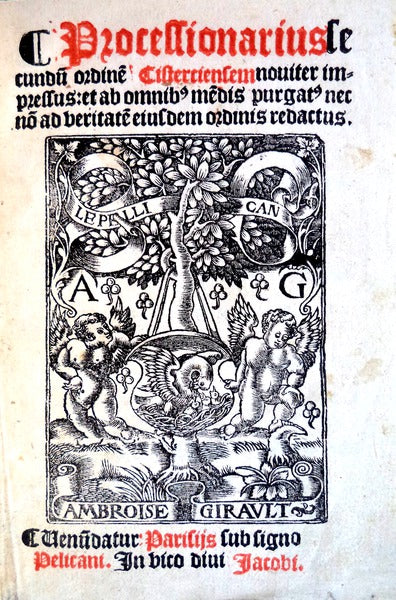 ¶ Processionarius se
cundū ordinē Cisterciensem noviter im-
pressus: et ab omnibꝰ mēdis purgatꝰ nec
nō ad veritatē eiusdem ordinis redactus.
LE PELLI CAN
A G
AMBROISE GIRAULT
¶ Venūdatur Parisijs sub signo
Pelicani. In vico divi Jacobi.